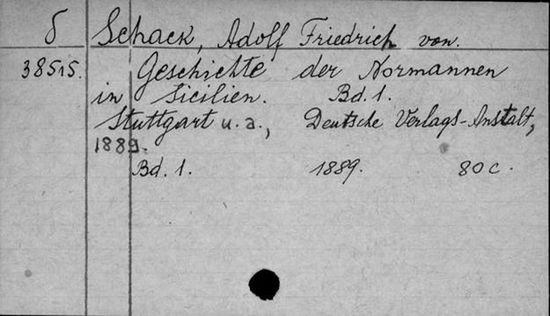 δ Schack, Adolf Friedrich von.
38515. Geschichte der Normannen
in Sicilien. Bd. 1.
Stuttgart u. a., Deutsche Verlags-Anstalt,
1889.
Bd. 1. 1889. 80 c.